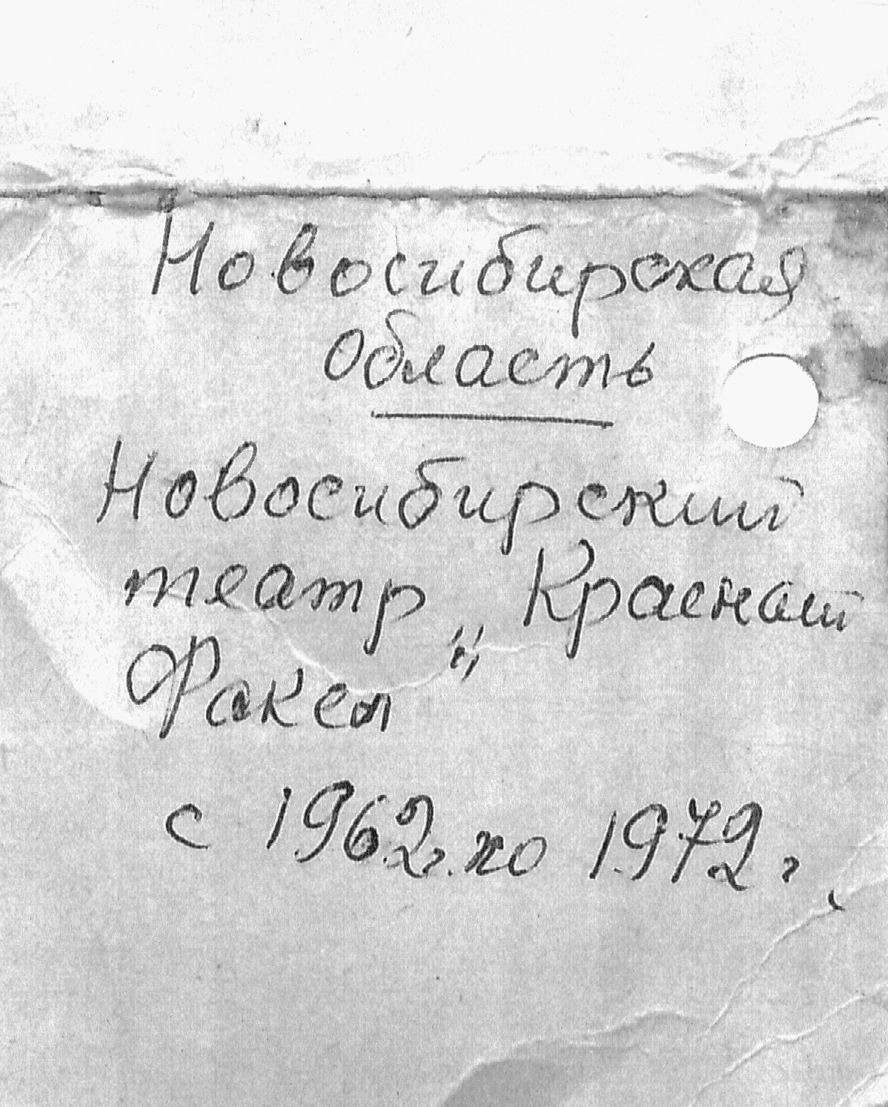 Новосибирская
область
Новосибирский
театр „Красный
Факел"
с 1962г. по 1972г.